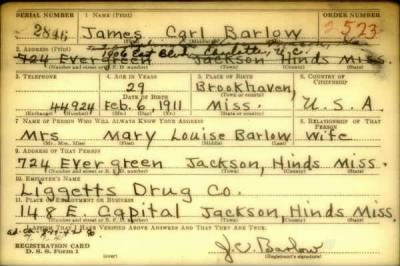 SERIAL NUMBER 1. NAME (Print) ORDER NUMBER
James Carl Barlow 2523
(First) (Middle) (Last)
2. ADDRESS (Print)
1906 Blvd. Charlotte, N.C.
724 Evergreen Jackson, Hinds Miss.
(Number and street or R. F. D. number) (Town) (County) (State)
3. TELEPHONE 4. AGE IN YEARS 5. PLACE OF BIRTH 6. COUNTRY OF CITIZENSHIP
29 Brookhaven,
DATE OF BIRTH (Town or county)
44924 Feb. 6, 1911 Miss. U.S.A.
7. NAME OF PERSON WHO WILL ALWAYS KNOW YOUR ADDRESS 8. RELATIONSHIP OF THAT PERSON
Mrs Mary Louise Barlow Wife
(Mr., Mrs., Miss) (First) (Middle) (Last)
9. ADDRESS OF THAT PERSON
724 Evergreen Jackson, Hinds Miss.
(Number and street or R. F. D. number) (Town) (County) (State)
10. EMPLOYER'S NAME
Liggetts Drug Co.
11. PLACE OF EMPLOYMENT OR BUSINESS
148 E Capital Jackson, Hinds Miss.
(Number and street or R. F. D. number) (Town) (County) (State)
I AFFIRM THAT I HAVE VERIFIED ABOVE ANSWERS AND THAT THEY ARE TRUE.
REGISTRATION CARD
D. S. S. Form 1
Barlow
(Registrant's signature)